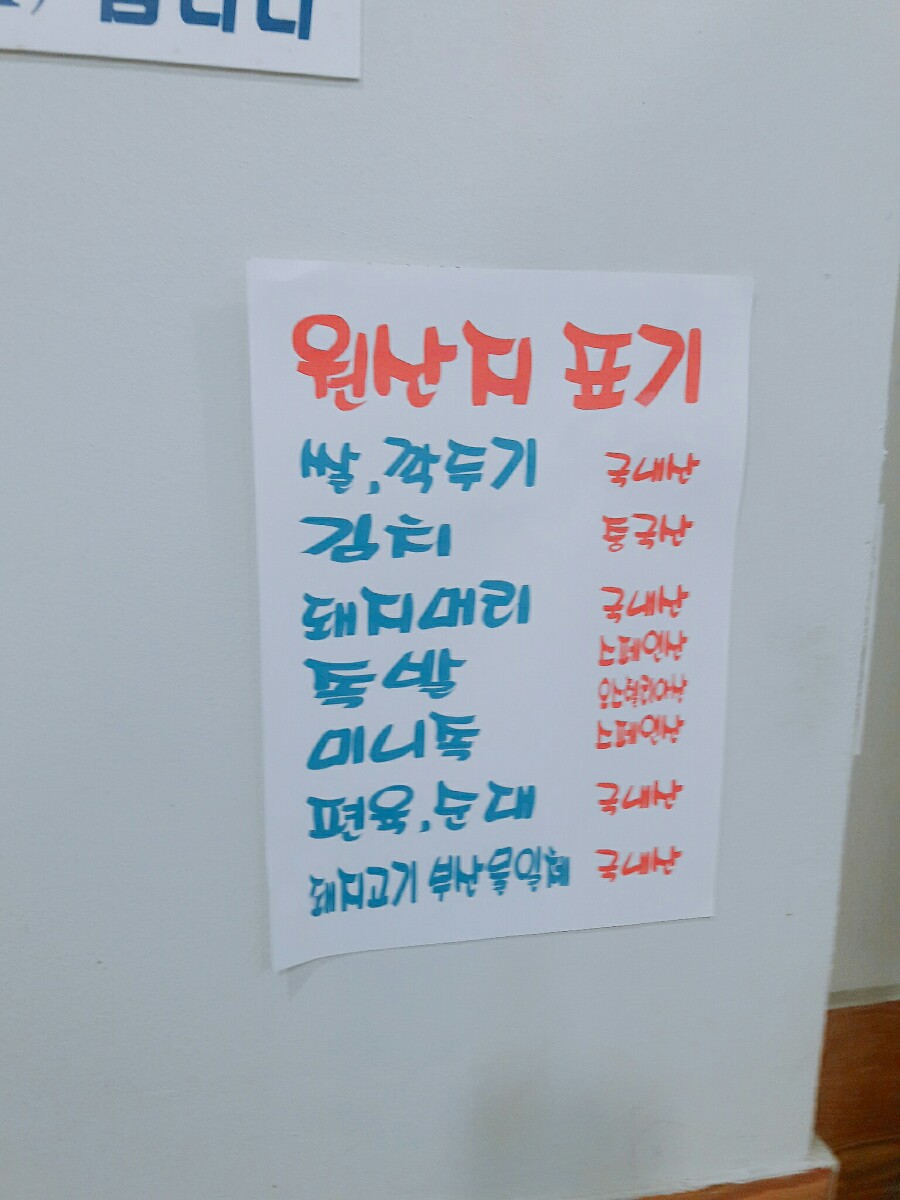 니다
원산지 표기
쌀, 깍두기 국내산
김치 중국산
돼지머리 국내산
족발 스페인산
오스트리아산
미니족 스페인산
편육, 순대 국내산
돼지고기 부산물일체 국내산